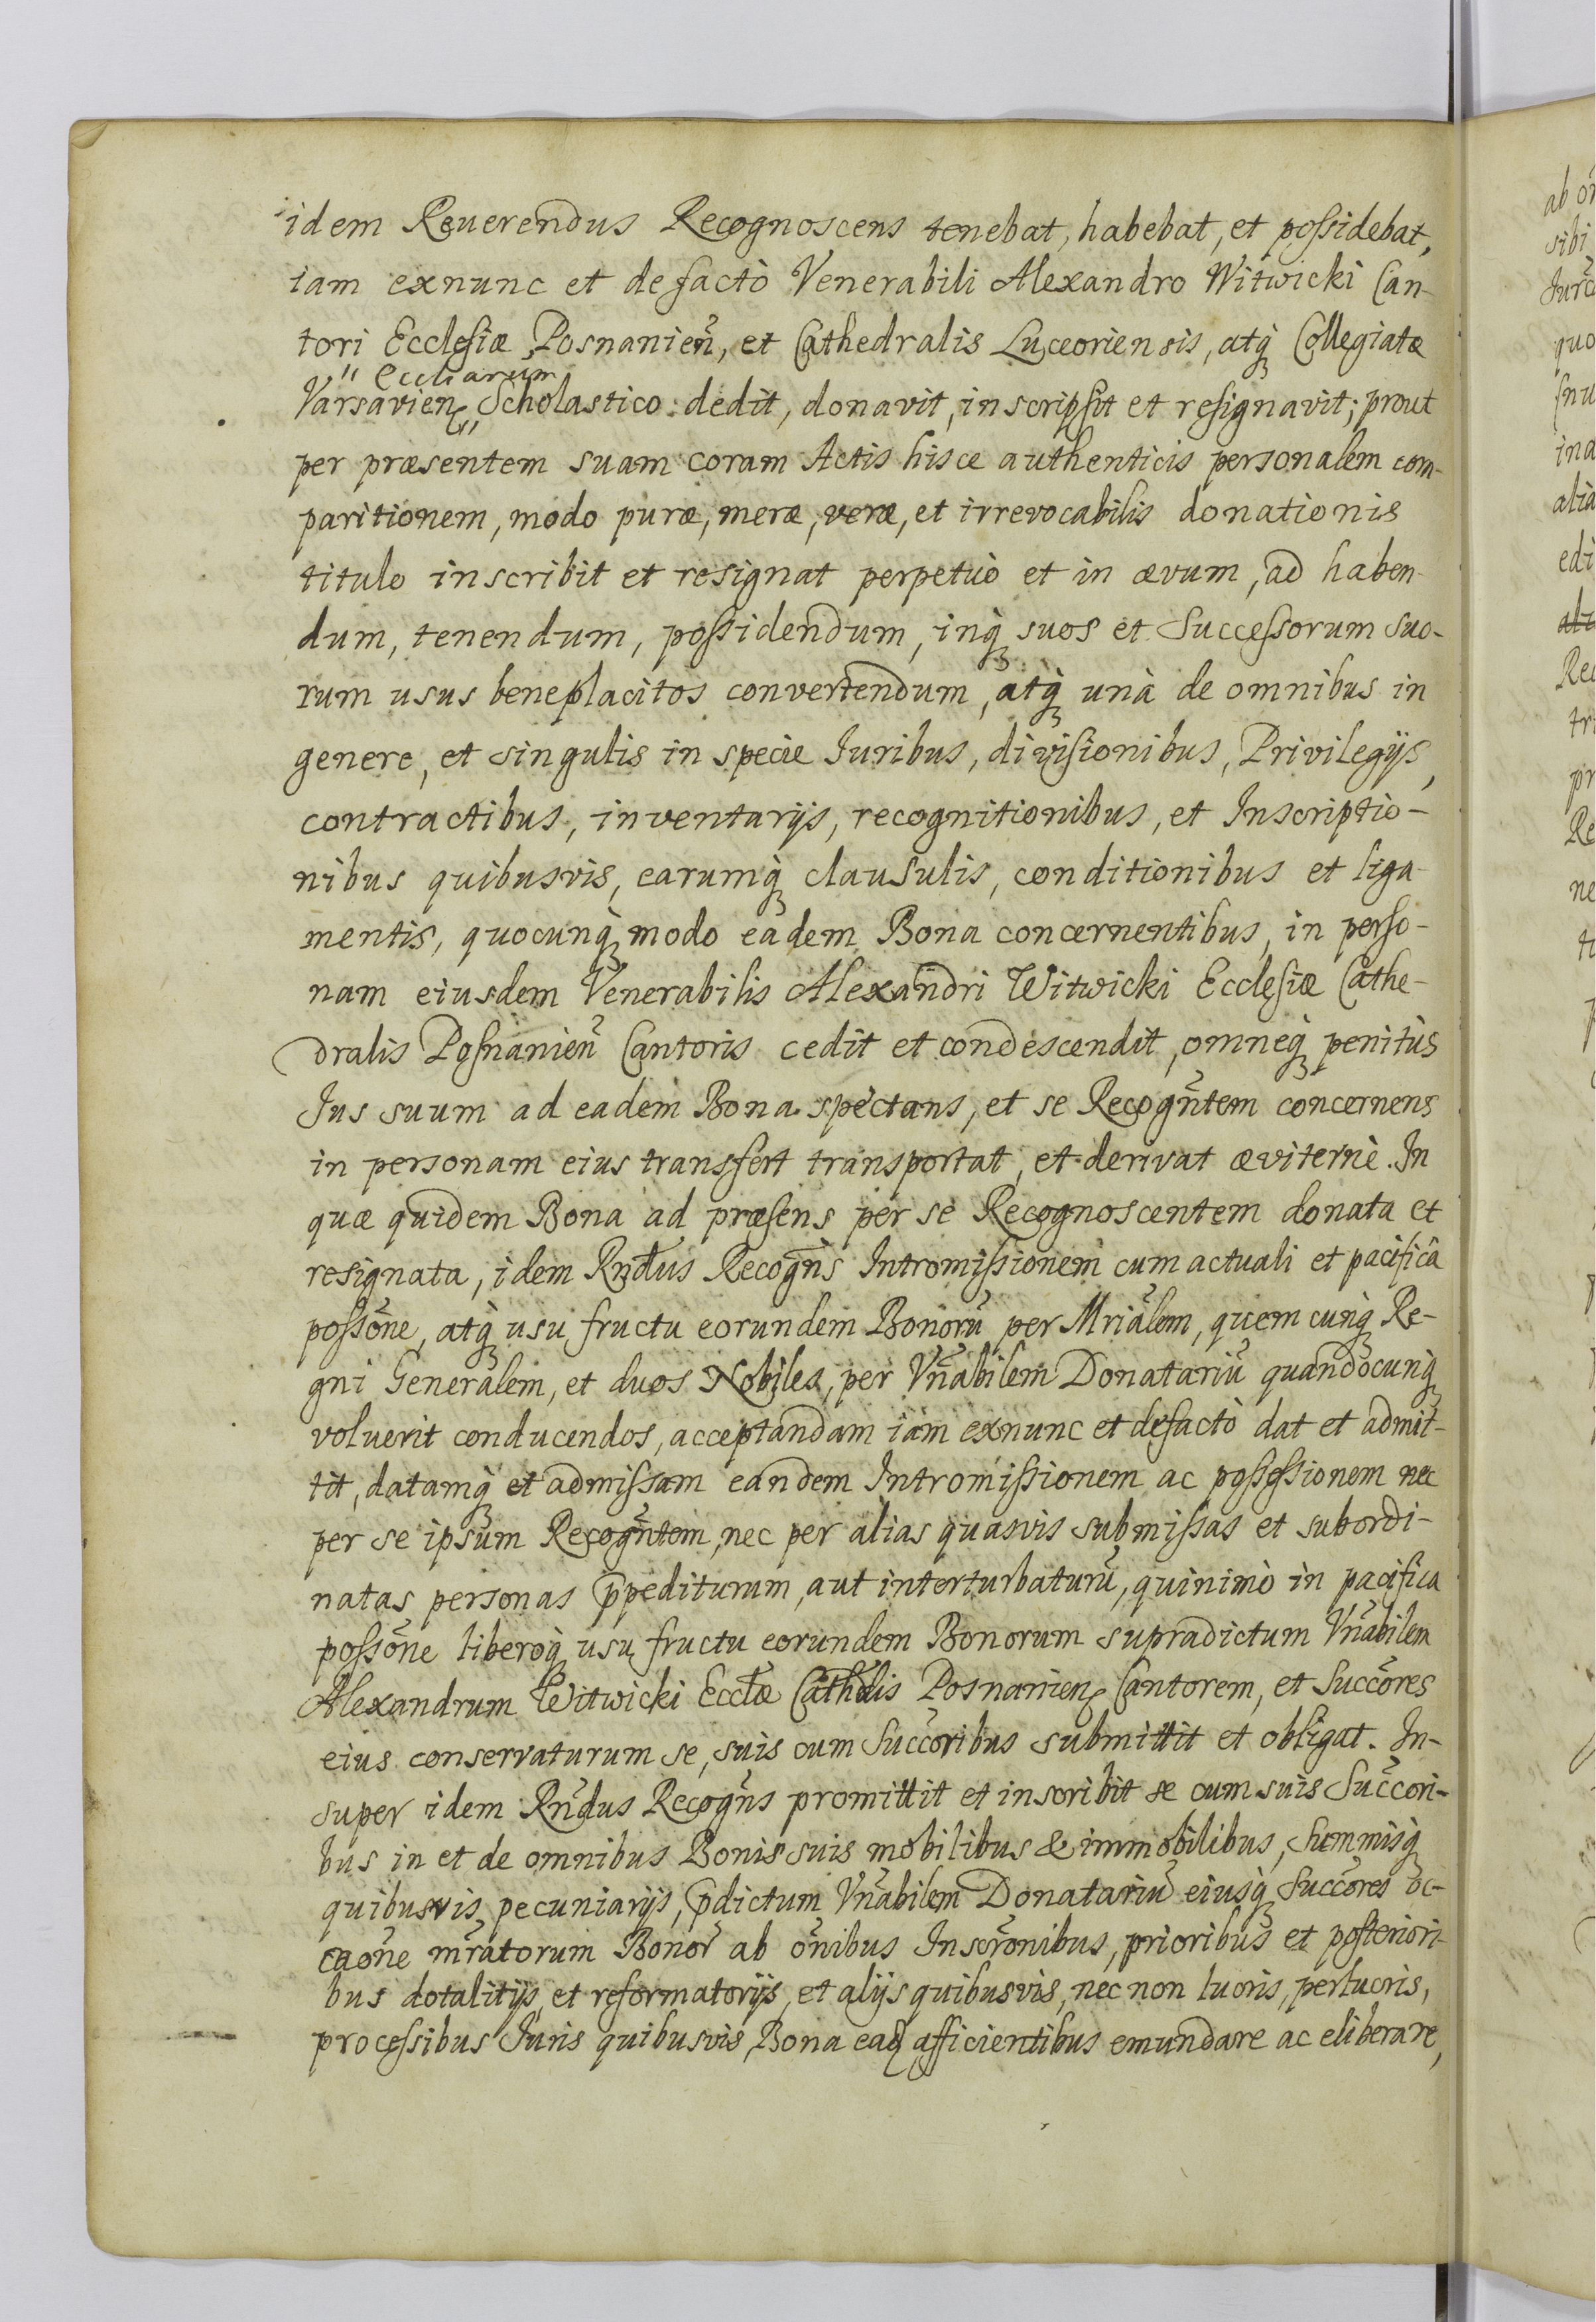 idem Reuerendus Recognoscens tenebat, habebat, et possidebat,
iam exnunc et de facto Venerabili Alexandro Witwicki Can-
tori Ecclesiæ Posnanien̄, et Cathedralis Luceoriensis, atq̀ Collegiatæ
" Eccliarum
Varsavien, " Scholastico: dedit, donavit, inscripsit et resignavit; prout
per præsentem suam coram Actis hisce authenticis personalem com-
paritionem, modo puræ, meræ, veræ, et irrevocabilis donationis
titulo inscribit et resignat perpetuò et in ævum, ad haben-
dum, tenendum, possidendum, inq̀ suos et Successorum suo-
rum usus beneplacitos convertendum, atq̀ unà de omnibus in
genere, et singulis in specie Iuribus, divisionibus, Privilegijs,
contractibus, inventarijs, recognitionibus, et Inscriptio-
nibus quibusvis, earumq̀ clausulis, conditionibus et liga-
mentis, quocunq̀ modo eadem Bona concernentibus, in perso-
nam eiusdem Venerabilis Alexandri Witwicki Ecclesiæ Cathe-
dralis Posnanien̄ Cantoris cedit et condescendit, omneq̀ penitùs
Ius suum ad eadem Bona spectans, et se Recogn̄tem concernens
in personam eius transfert transportat, et derivat æviternè. In
quæ quidem Bona ad præsens per se Recognoscentem donata et
resignata, idem Rn̄dus Recogn̄s Intromissionem cum actuali et pacificâ
possōne, atq̀ usu fructu eorundem Bonorū per Mriālem, quem cunq̀ Re-
gni Generalem, et duos Nobiles, per Vn̄abilem Donatariū quandocunq̀
voluerit conducendos, acceptandam iam exnunc et defactò dat et admit-
tit, datamq̀ et admissam eandem Intromissionem ac possessionem nec
per se ipsum Recogn̄tem, nec per alias quasvis submissas et subordi-
natas personas p̄peditu­rum, aut interturbaturū, quinimò in pacifica
possōne liberoq̀ usu fructu eorundem Bonorum supradictum Vn̄abilem
Alexandrum Witwicki Eccłæ Cathdlis Posnanien, Cantorem, et Succōres
eius conservaturum se, suis cum Succōribus submittit et obligat. In-
super idem Rn̄dus Recogn̄s promittit et inscribit se cum suis Succōri-
bus in et de omnibus Bonis suis mobilibus & immobilibus, Summisq̀
quibusvis pecuniarijs, p̄dictum Vn̄abilem Donatariū eiusq̀ Succōres oc-
caōne mr̄atorum Bonor̄ ab ōnibus Inscrōnibus, prioribus et posteriori-
bus dotalitijs, et reformatorijs, et alijs quibusvis, nec non lucris, perlucris,
processibus Iuris quibusvis, Bona eaḋ afficientibus emundare ac eliberare,